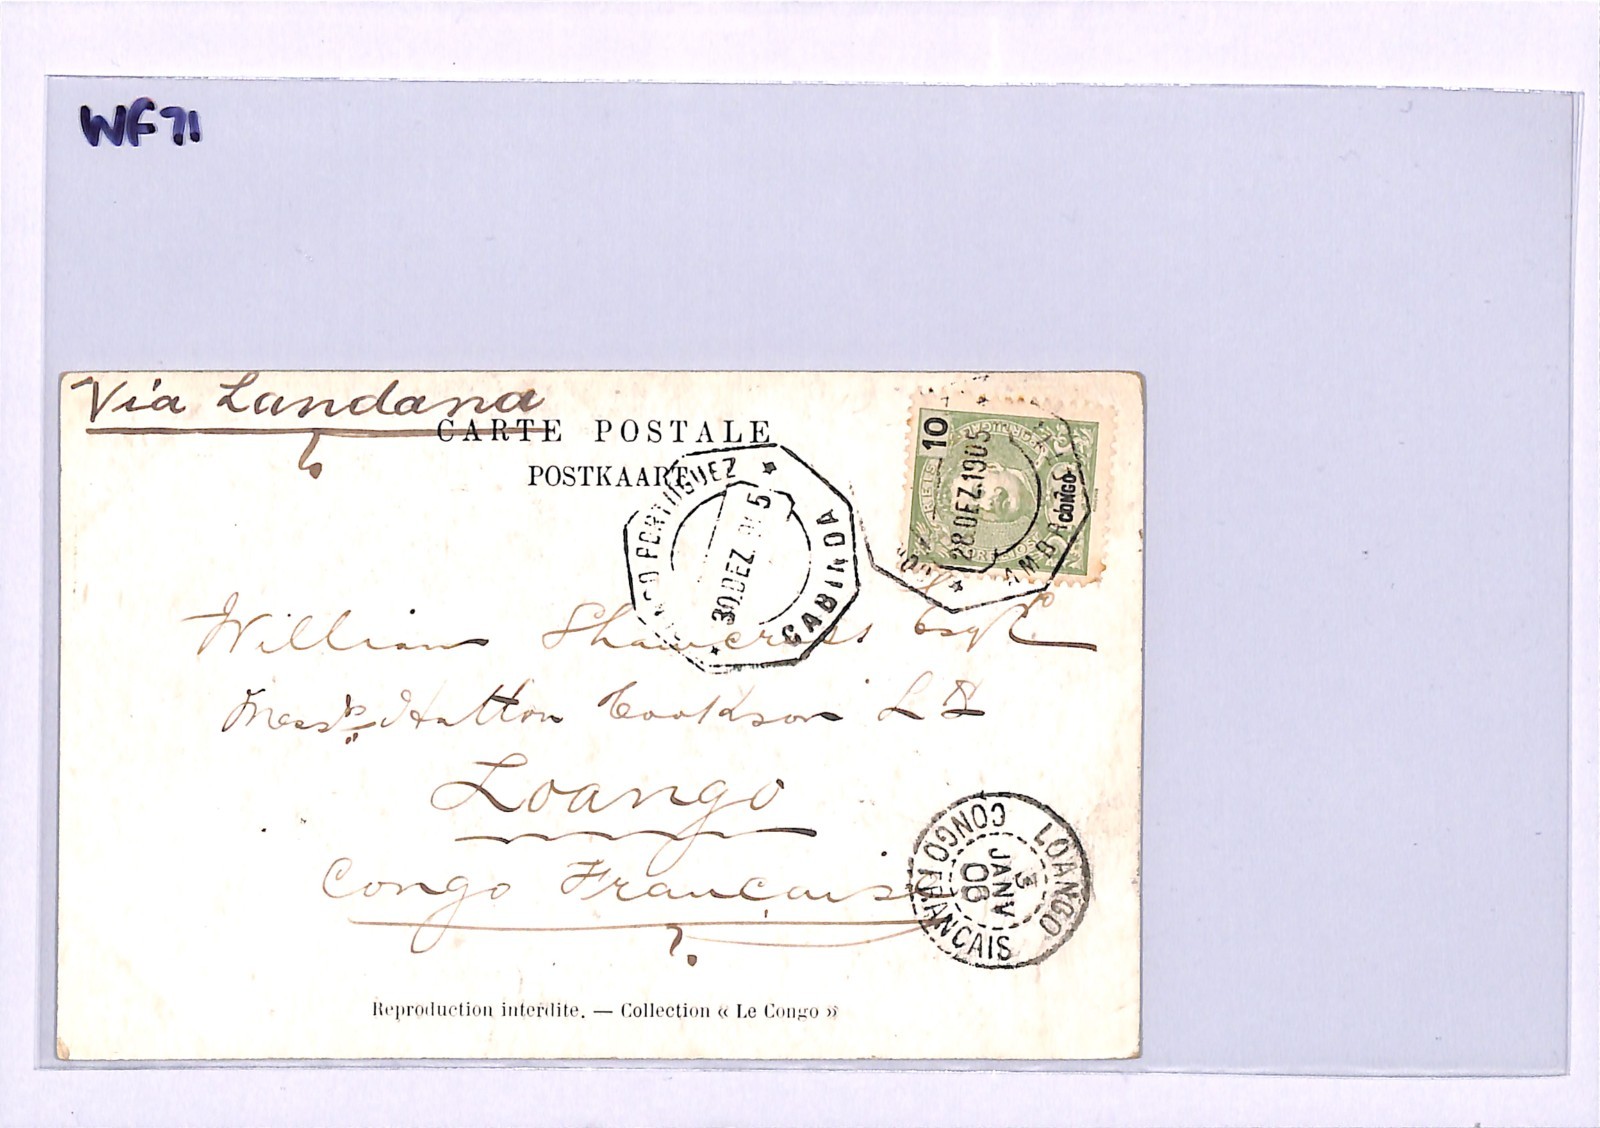 WF71
Via Landana
CARTE POSTALE
POSTKAART
CONGO PORTUGUEZ
30 DEZ. 5
CABINDA
10
REIS
CORREIOS
CONGO
28 DEZ. 1905
AMBR
William Shawcross Esqre.
Messrs Hatton Cookson Ld
Loango
Congo Français
LOANGO
3
JANV
06
CONGO FRANCAIS
Reproduction interdite. — Collection « Le Congo »